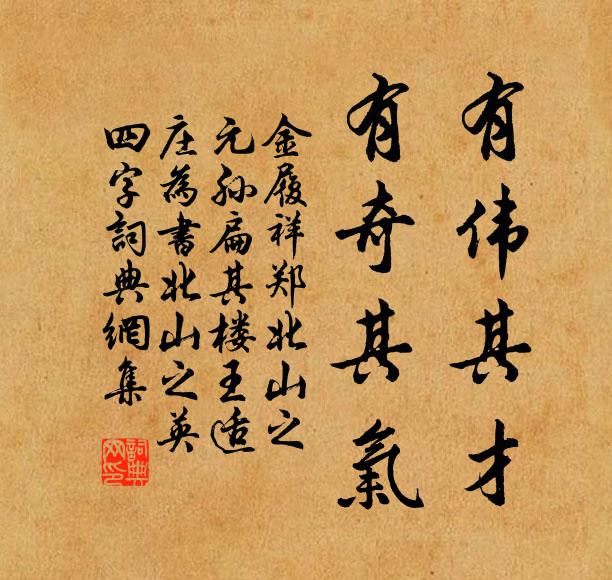 有伟其才
有奇其氣
金履祥郑北山之
元孙扁其楼王适
庄為書北山之英
四字詞典網集
詞典网印